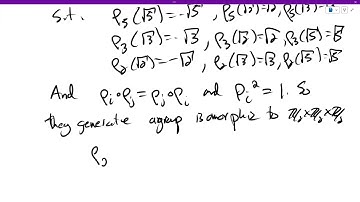 s.t. ρ₅(√5) = -√5, ρ₅(√2)=√2, ρ₅(√3)=√3
ρ₃(√3) = -√3, ρ₃(√2)=√2, ρ₃(√5)=√5
ρ₂(√2) = -√2, ρ₂(√3)=√3, ρ₂(√5)=√5
And ρᵢ∘ρⱼ = ρⱼ∘ρᵢ and ρᵢ² = 1. So
they generate a group isomorphic to ℤ/₂×ℤ/₂×ℤ/₂
ρ₂